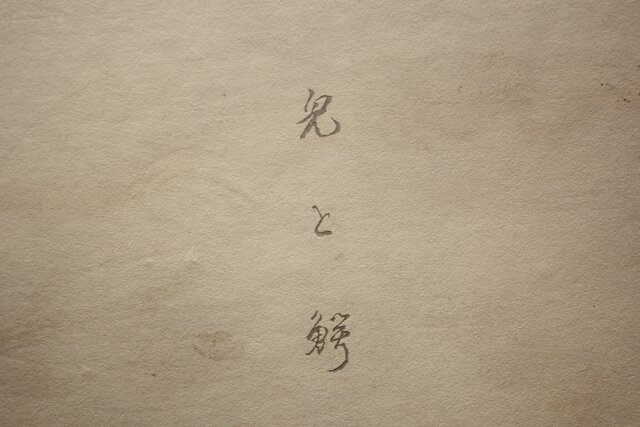 兎と鰐